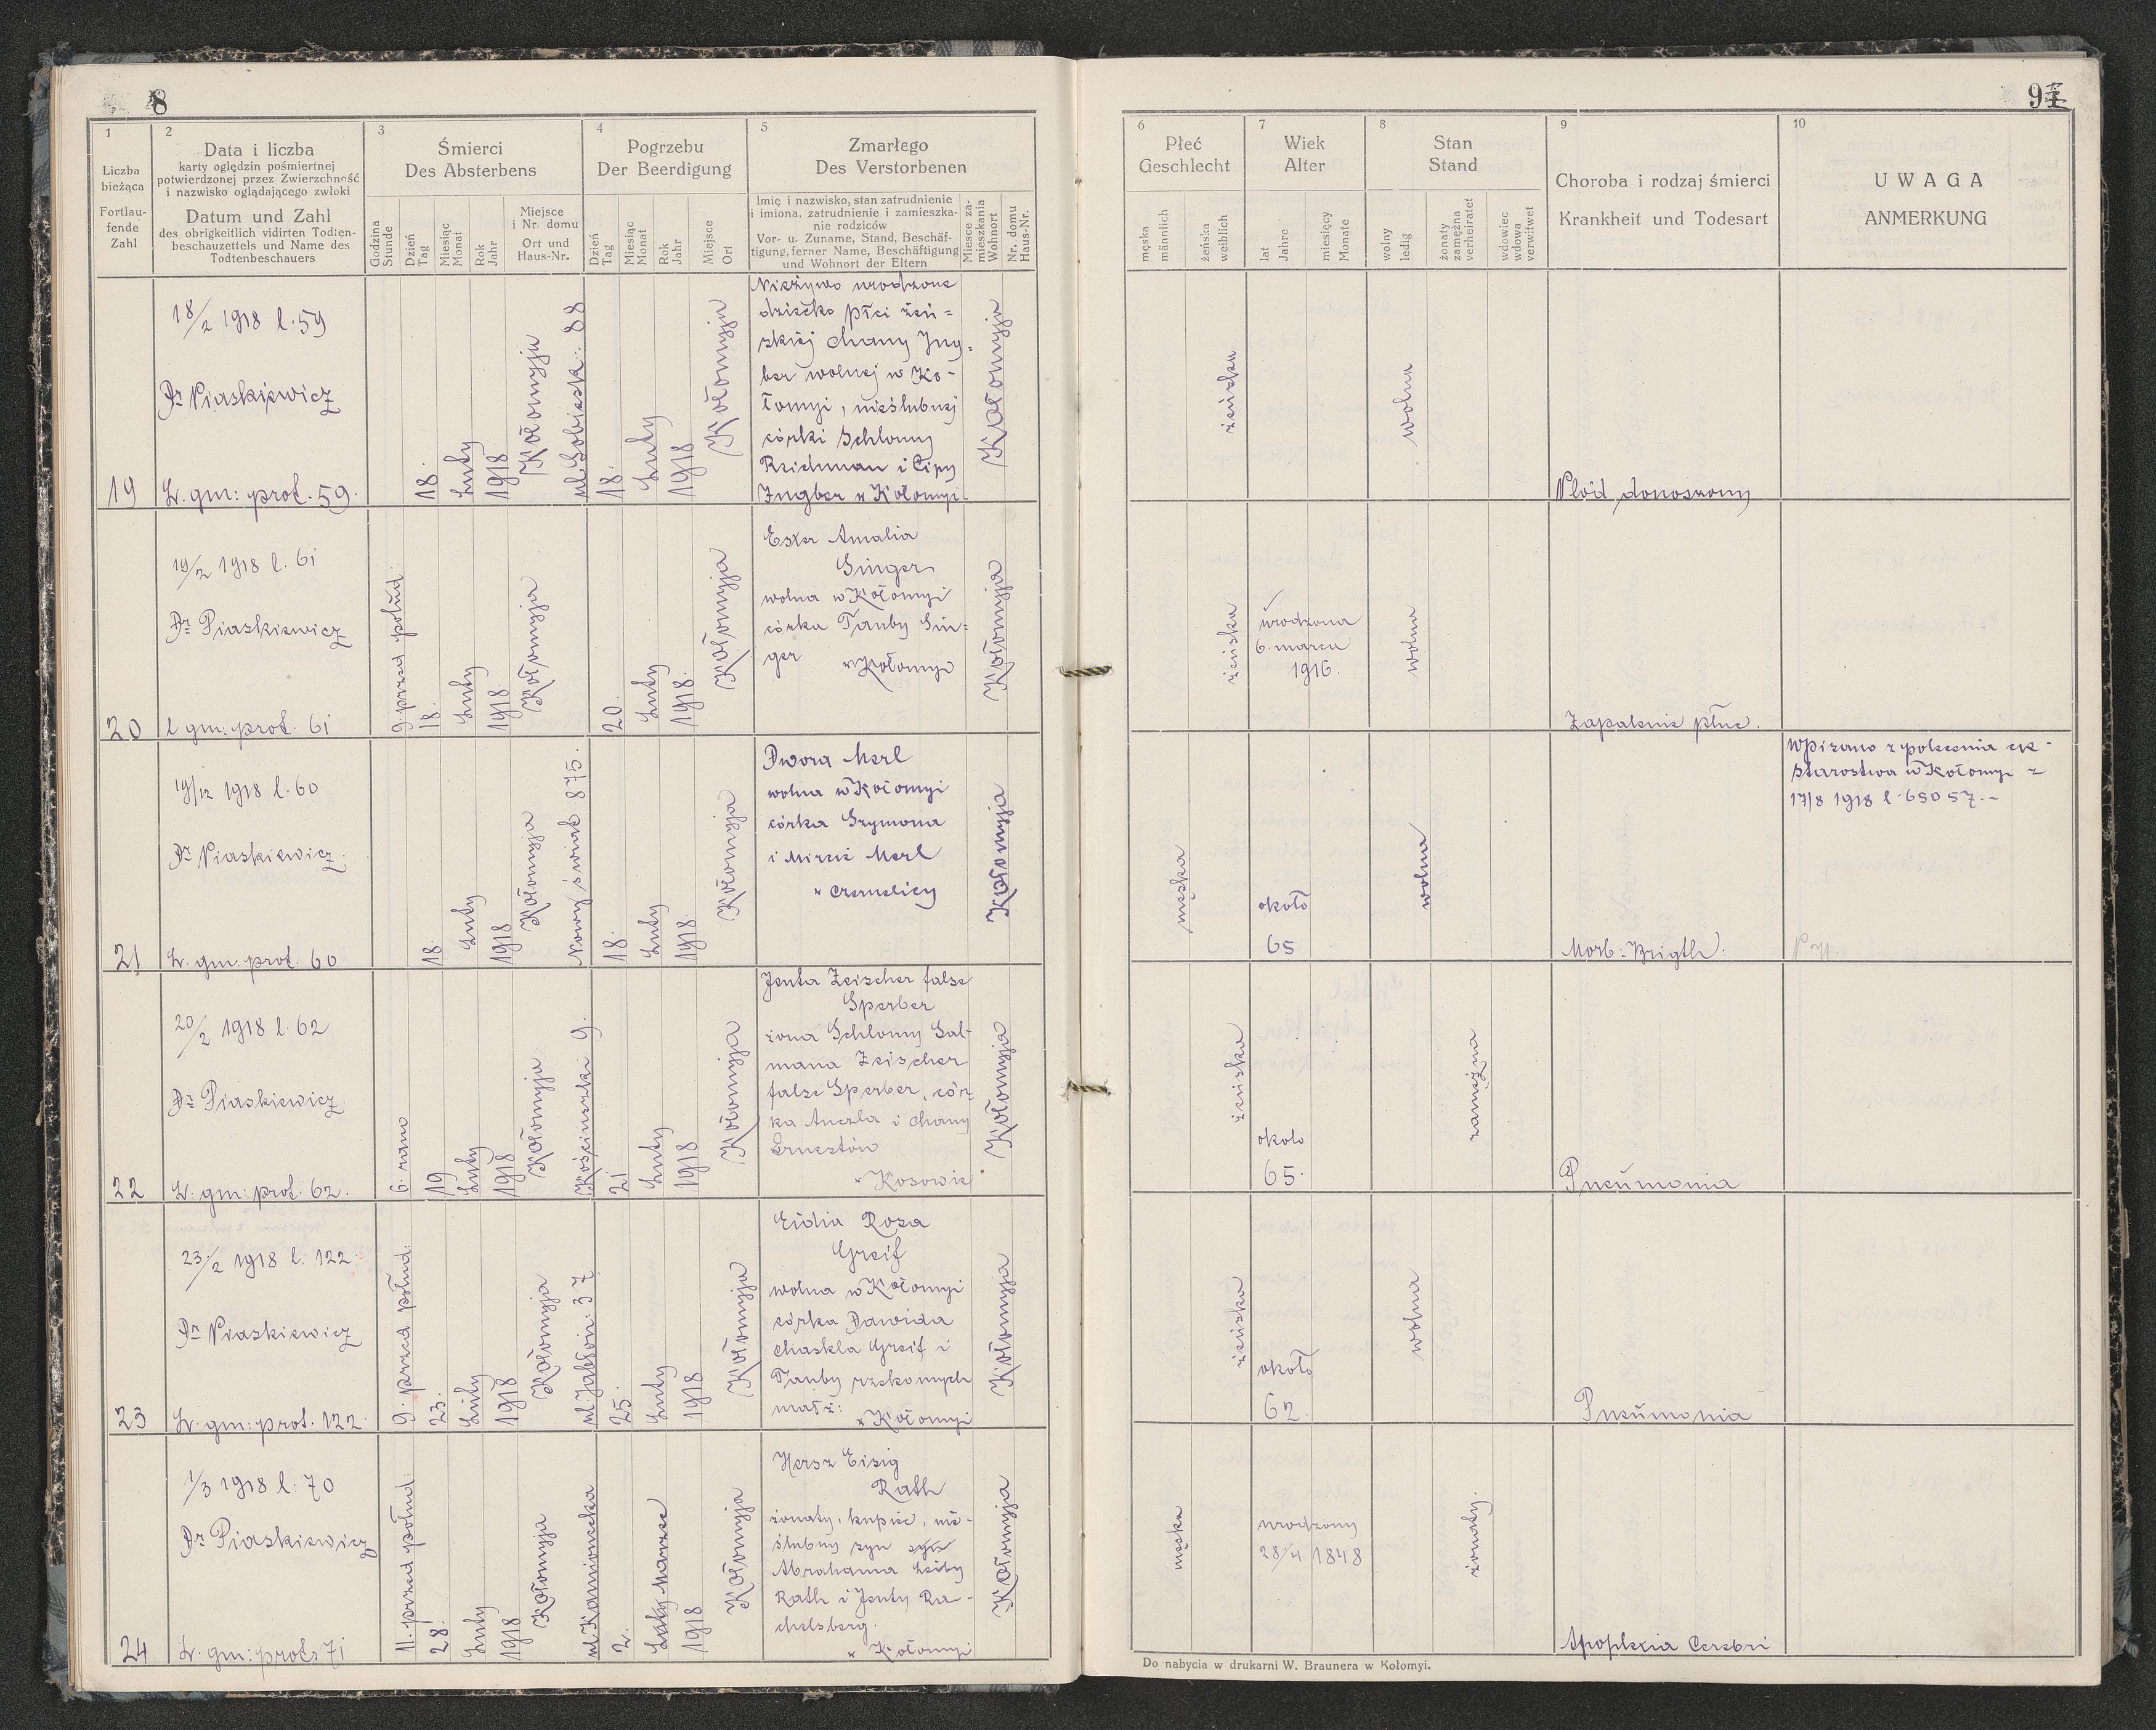 8
1
Liczba
bieżąca
Fortlau-
fende
Zahl
2
Data i liczba
karty oględzin pośmiertnej
potwierdzonej przez Zwierzchność
i nazwisko oglądającego zwłoki
Datum und Zahl
des obrigkeitlich vidirten Todten-
beschauzettels und Name des
Todtenbeschauers
3
Śmierci
Des Absterbens
Godzina
Stunde
Dzień
Tag
Miesiąc
Monat
Rok
Jahr
Miejsce
i Nr. domu
Ort und
Haus-Nr.
4
Pogrzebu
Der Beerdigung
Dzień
Tag
Miesiąc
Monat
Rok
Jahr
Miejsce
Ort
5
Zmarłego
Des Verstorbenen
Imię i nazwisko, stan zatrudnienie
i imiona, zatrudnienie i zamieszka-
nie rodziców
Vor- u. Zuname, Stand, Beschäf-
tigung, ferner Name, Beschäftigung
und Wohnort der Eltern
Miesce za-
mieszkania
Wohnort
Nr. domu
Haus-Nr.
19
18/2 1918 l. 59
Dr Piaskiewicz
L. gm: prot. 59.
18.
Luty
1918
Kołomyja
ul. Sobiesk. 88
18.
Luty
1918
Kołomyja
Nieżywo urodzone
dziecko płci żeń=
skiej Chany Ing=
ber wolnej w Ko-
łomyi, nieślubnej
córki Schlomy
Reichman i Cipy
Ingber w Kołomyi
Kołomyja
20
19/2 1918 l. 61
Dr Piaskiewicz
l gm: prot. 61
9. przed połud:
18.
Luty
1918
Kołomyja
20.
Luty
1918.
Kołomyja
Ester Amalia
Singer
wolna w Kołomyi
córka Tauby Sin=
ger w Kołomyi
Kołomyja
21
19/12 1918 l. 60
Dr Piaskiewicz.
L. gm: prot. 60
18.
Luty
1918
Kołomyja
Nowy świat 875.
18.
Luty
1918.
Kołomyja
Dwora Merl
wolna w Kołomyi
córka Szymona
i Mircie Merl
w Czernelicy
Kołomyja
22
20/2 1918 l. 62
Dr Piaskiewicz.
L. gm: prot. 62.
6. rano
19
Luty
1918
Kołomyja
Kościuszki 9.
21
Luty
1918
Kołomyja
Jenta Zeischer false
Sperber
żona Schlomy Sal-
mana Zeischer
false Sperber, cór-
ka Anczla i Chany
w Kosowie
Kołomyja
23
23/2 1918 l. 122
Dr Piaskiewicz
L. gm: prot. 122
9. przed połud:
23.
Luty
1918
Kołomyja
ul Jabłon: 37
25.
Luty
1918
Kołomyja
Eidia Roza
Greif
wolna w Kołomyi
córka Dawida
Chaskla Greif i
Tauby rzekomych
małż: w Kołomyi
Kołomyja
24
1/3 1918 l: 70
Dr Piaskiewicz
L. gm: prot. 71
11. przed połud:
28.
Luty
1918
Kołomyja
ul Kamionecka
2.
Luty Marzec
1918
Kołomyja
Hersz Eisig
Rath
żonaty, kupiec, nie-
ślubny syn syn
Abrahama Leiby
Rath i Jenty Ra-
chelsberg.
w Kołomyi
Kołomyja
9
6
Płeć
Geschlecht
męska
männlich
żeńska
weiblich
7
Wiek
Alter
lat
Jahre
miesięcy
Monate
8
Stan
Stand
wolny
ledig
żonaty
zamężna
verheiratet
wdowiec
wdowa
verwitwet
9
Choroba i rodzaj śmierci
Krankheit und Todesart
10
UWAGA
ANMERKUNG
żeńska
wolna
Płód donoszony
żeńska
urodzona
6. marca
1916.
wolna
Zapalenie płuc.
męska
około
65
wolna
Morb: Brigth.
Wpisano z polecenia ck-
Starostwa w Kołomyi z
17/8 1918 l. 65057.-
żeńska
około
65.
zamężna
Pneumonia
żeńska
około
62.
wolna
Pneumonia
męska
urodzony
28/4 1848
żonaty.
Apoplexia Cerebri
Do nabycia w drukarni W. Braunera w Kołomyi.